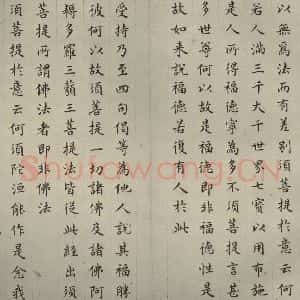 以無為法而有差別須菩提於意云何
若人滿三千大千世界七寶以用布施
是人所得福德寧為多不須菩提言甚
多世尊何以故是福德即非福德性是
故如來說福德若復有人於此
受持乃至四句偈等為他人說其福勝
彼何以故須菩提一切諸佛及諸佛阿
耨多羅三藐三菩提法皆從此經出須
菩提所謂佛法者即非佛法
須菩提於意云何須陀洹能作是念我
Shufawang.CN